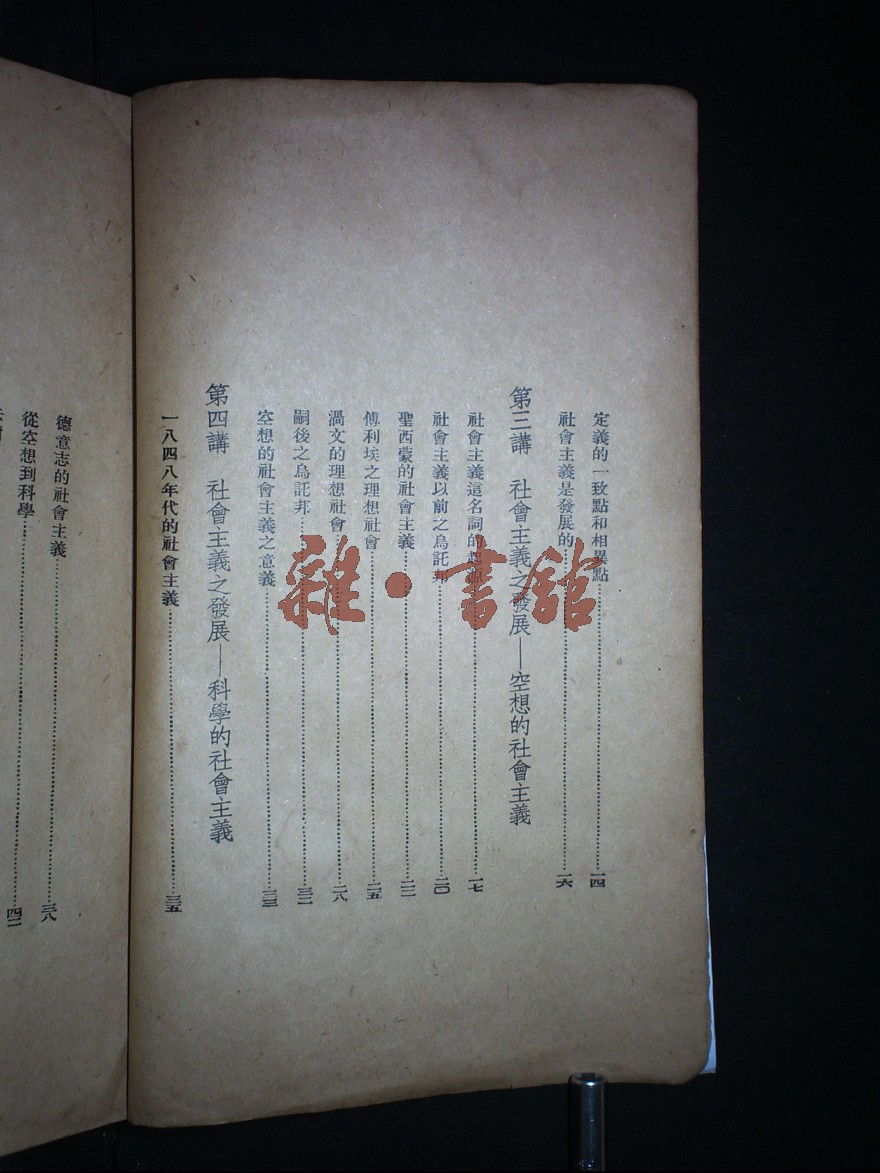 定義的一致點和相異點……一四
社會主義是發展的……一六
第三講　社會主義之發展—空想的社會主義
社會主義這名詞的起源……一七
社會主義以前之烏託邦……二〇
聖西蒙的社會主義……二二
傅利埃之理想社會……二五
渦文的理想社會……二八
嗣後之烏託邦……三二
空想的社會主義之意義……三三
第四講　社會主義之發展—科學的社會主義
一八四八年代的社會主義……三五
德意志的社會主義……三八
從空想到科學……四二
雜·書舘